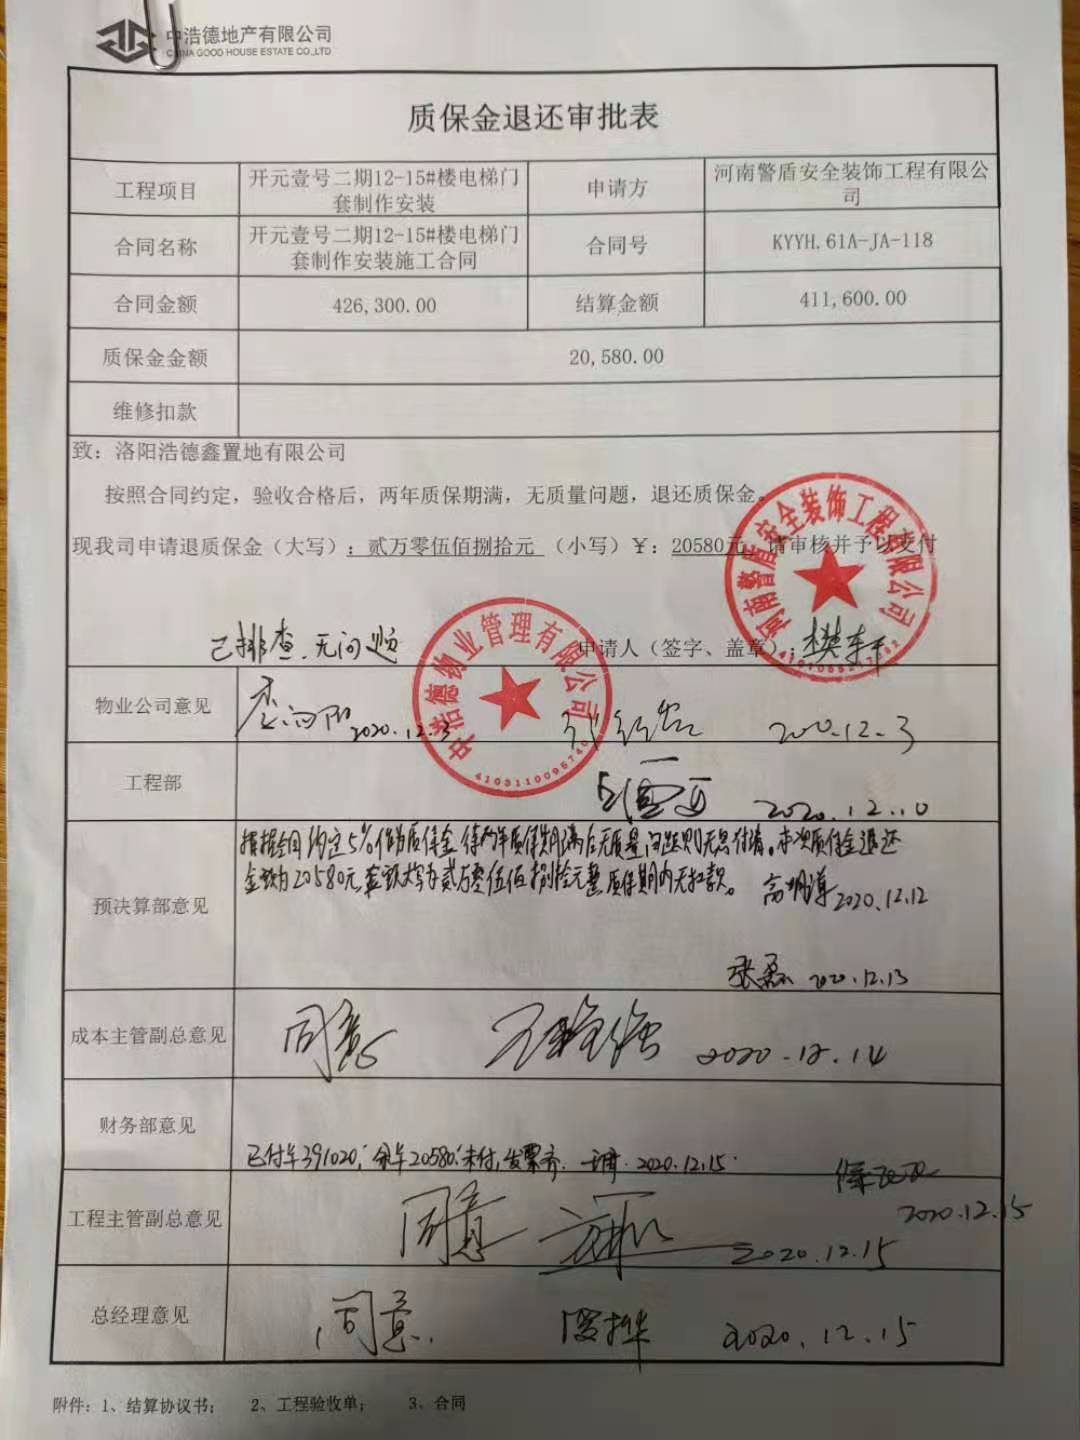 中浩德地产有限公司
CHINA GOOD HOUSE ESTATE CO.,LTD
质保金退还审批表
工程项目 开元壹号二期12-15#楼电梯门套制作安装 申请方 河南警盾安全装饰工程有限公司
合同名称 开元壹号二期12-15#楼电梯门套制作安装施工合同 合同号 KYYH.61A-JA-118
合同金额 426,300.00 结算金额 411,600.00
质保金金额 20,580.00
维修扣款
致：洛阳浩德鑫置地有限公司
按照合同约定，验收合格后，两年质保期满，无质量问题，退还质保金。
现我司申请退质保金（大写）：贰万零伍佰捌拾元 （小写）￥：20580元 请审核并予以支付
河南警盾安全装饰工程有限公司
已排查，无问题
申请人（签字、盖章）：樊车千
中浩德物业管理有限公司
4103110095740
物业公司意见 2020.12.3 2020.12.3
工程部 2020.12.10
预决算部意见 根据合同约定5%作为质保金，待两年质保期满后无质量问题则无息付清。本次质保金退还
金额为20580元，金额大写为贰万零伍佰捌拾元整，质保期内无扣款。 2020.12.12
张磊 2020.12.13
成本主管副总意见 同意 2020.12.14
财务部意见 已付￥391020，余￥20580未付，发票齐. 2020.12.15
2020.12.15
工程主管副总意见 同意 2020.12.15
总经理意见 同意. 2020.12.15
附件：1、结算协议书； 2、工程验收单； 3、合同